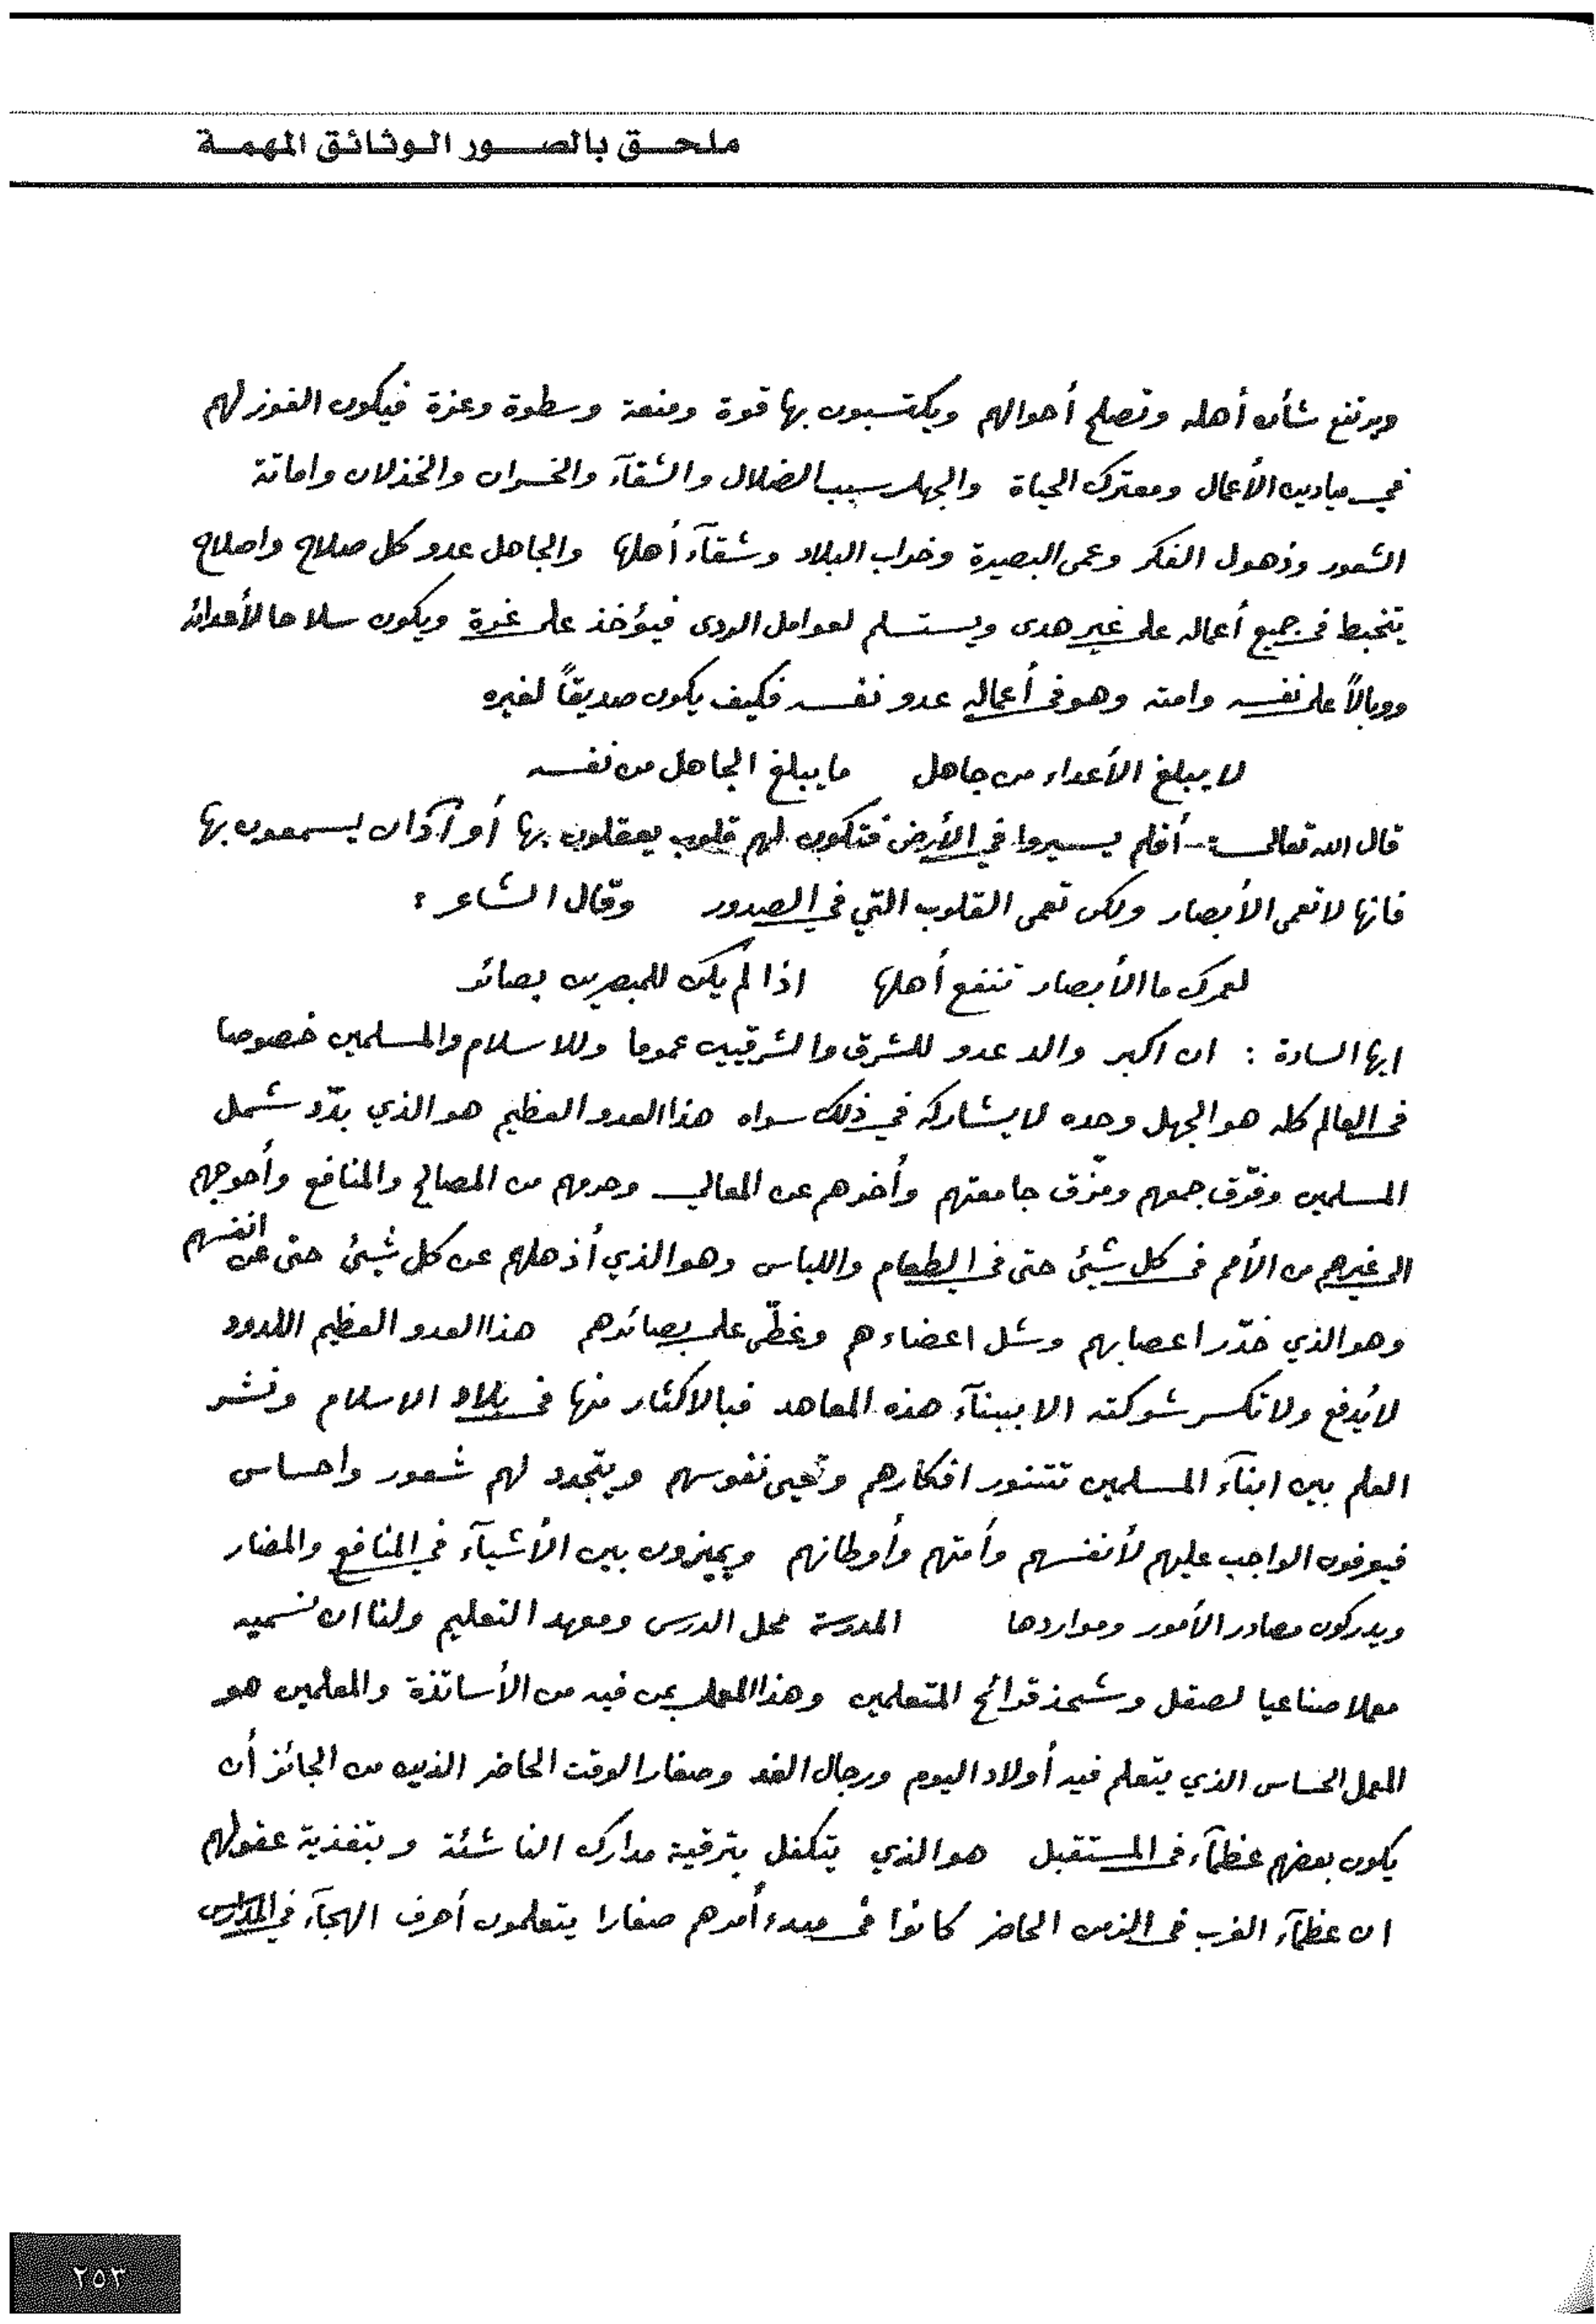 ملحق بالصور الوثائق المهمة
ويرتفع شأن أهله وتصلح أحوالهم ويكتسبون بها قوة ومنعة وسطوة وعزة فيكون الفوز لهم
في ميادين الأعمال ومعترك الحياة والجهل سبب الضلال والشقآء والخسران والخذلان واماتة
الشعور وذهول الفكر وعمى البصيرة وخراب البلاد وشقآء أهلها والجاهل عدو كل صلاح واصلاح
يتخبط في جميع أعماله على غير هدى ويستسلم لعوامل الردى فيؤخذ على غرة ويكون سلاحا لأعدائه
ووبالاً على نفسه وامته وهو في أعماله عدو نفسه فكيف يكون صديقاً لغيره
لا يبلغ الأعداء من جاهل ما يبلغ الجاهل من نفسه
قال الله تعالى :- أفلم يسيروا في الأرض فتكون لهم قلوب يعقلون بها أو آذان يسمعون بها
فانها لا تعمى الأبصار ولكن تعمى القلوب التي في الصدور وقال الشاعر :
لعمرك ما الأبصار تنفع أهلها اذا لم يكن للمبصرين بصائر
ايها السادة : ان اكبر والد عدو للشرق والشرقيين عموما وللاسلام والمسلمين خصوصا
في العالم كله هو الجهل وحده لا يشاركه في ذلك سواه هذا العدو العظيم هو الذي بدّد شمل
المسلمين وفرّق جمعهم ومزّق جامعتهم وأخرهم عن المعالي وحرمهم من المصالح والمنافع وأحوجهم
الى غيرهم من الأمم في كل شيئ حتى في الطعام واللباس وهو الذي أذهلهم عن كل شيئ حتى عن انفسهم
وهو الذي خدّر اعصابهم وشل اعضاءهم وغطّى على بصائرهم هذا العدو العظيم اللدود
لا يُدفع ولا تكسر شوكته الا ببنآء هذه المعاهد فبالاكثار منها في بلاد الاسلام ونشر
العلم بين ابنآء المسلمين تتنور افكارهم وتحيى نفوسهم ويتجدد لهم شعور واحساس
فيعرفون الواجب عليهم لأنفسهم وأمتهم وأوطانهم ويميزون بين الأشيآء في المنافع والمضار
ويدركون مصادر الأمور ومواردها المدرسة محل الدرس ومعهد التعليم ولنا ان نسميه
معملا صناعيا لصقل وشحذ قرائح المتعلمين وهذا المعمل بمن فيه من الأساتذة والمعلمين هو
المعمل الحساس الذي يتعلم فيه أولاد اليوم ورجال الغد وصغار الوقت الحاضر الذين من الجائز أن
يكون بعضهم عظمآء في المستقبل هو الذي يتكفل بترقية مدارك الناشئة وبتغذية عقولهم
ان عظمآء الغرب في الزمن الحاضر كانوا في مبدء أمرهم صغارا يتعلمون أحرف الهجآء في المدارس
٢٥٣